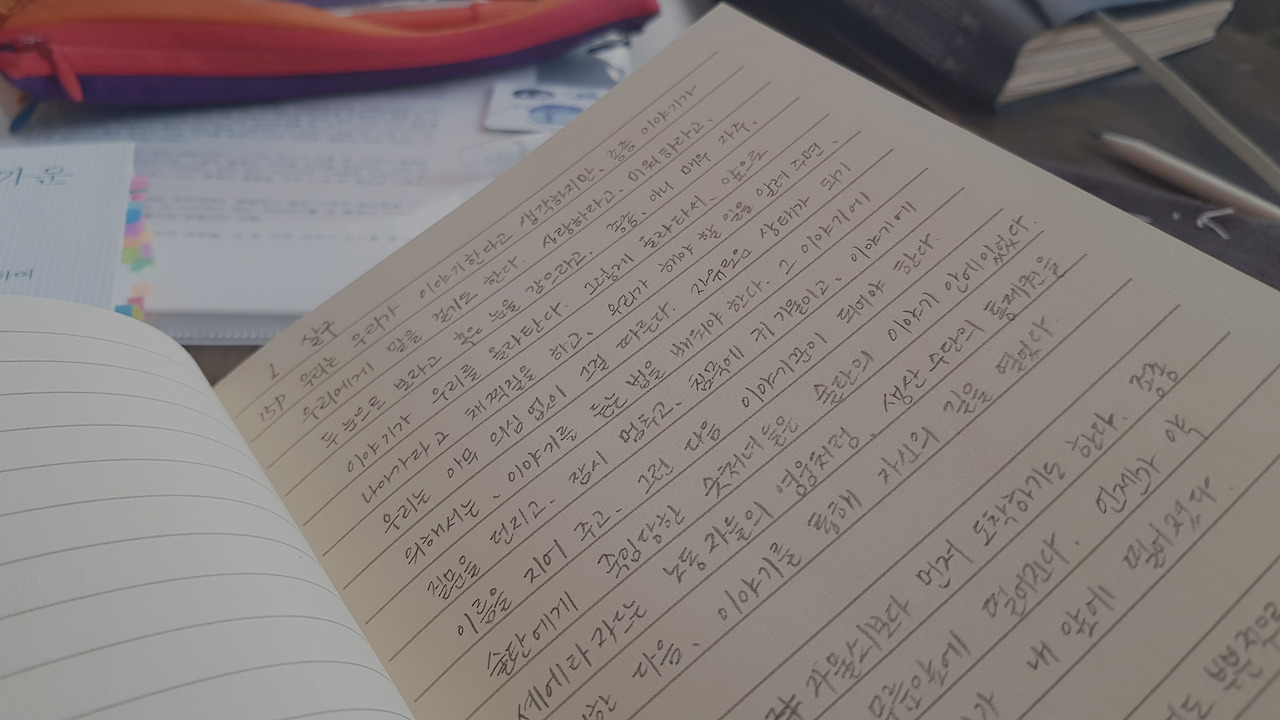 가온
하여
1 살구
15P 우리는 우리가 이야기한다고 생각하지만, 종종 이야기가
우리에게 말을 걸기도 한다. 사랑하라고, 미워하라고,
두 눈으로 보라고 혹은 눈을 감으라고. 종종, 아니 매우 자주,
이야기가 우리를 올라탄다. 그렇게 올라타서, 앞으로
나아가라고 채찍질을 하고, 우리가 해야 할 일을 알려 주면,
우리는 아무 의심 없이 그걸 따른다. 자유로운 상태가 되기
위해서는, 이야기를 듣는 법을 배워야 한다. 그 이야기에
질문을 던지고, 잠시 멈추고, 침묵에 귀 기울이고, 이야기에
이름을 지어 주고, 그런 다음 이야기꾼이 되어야 한다.
술탄에게 죽임당한 숫처녀들은 술탄의 이야기 안에 있었다.
노동자들의 영웅처럼, 생산 수단의 통제권을
세에라자드는
다음, 이야기를 통해 자신의 길을 열었다.
자물쇠보다 먼저 도착하기도 한다. 종종
떨어진다. 언젠가 아
가 내 앞에 떨어졌다